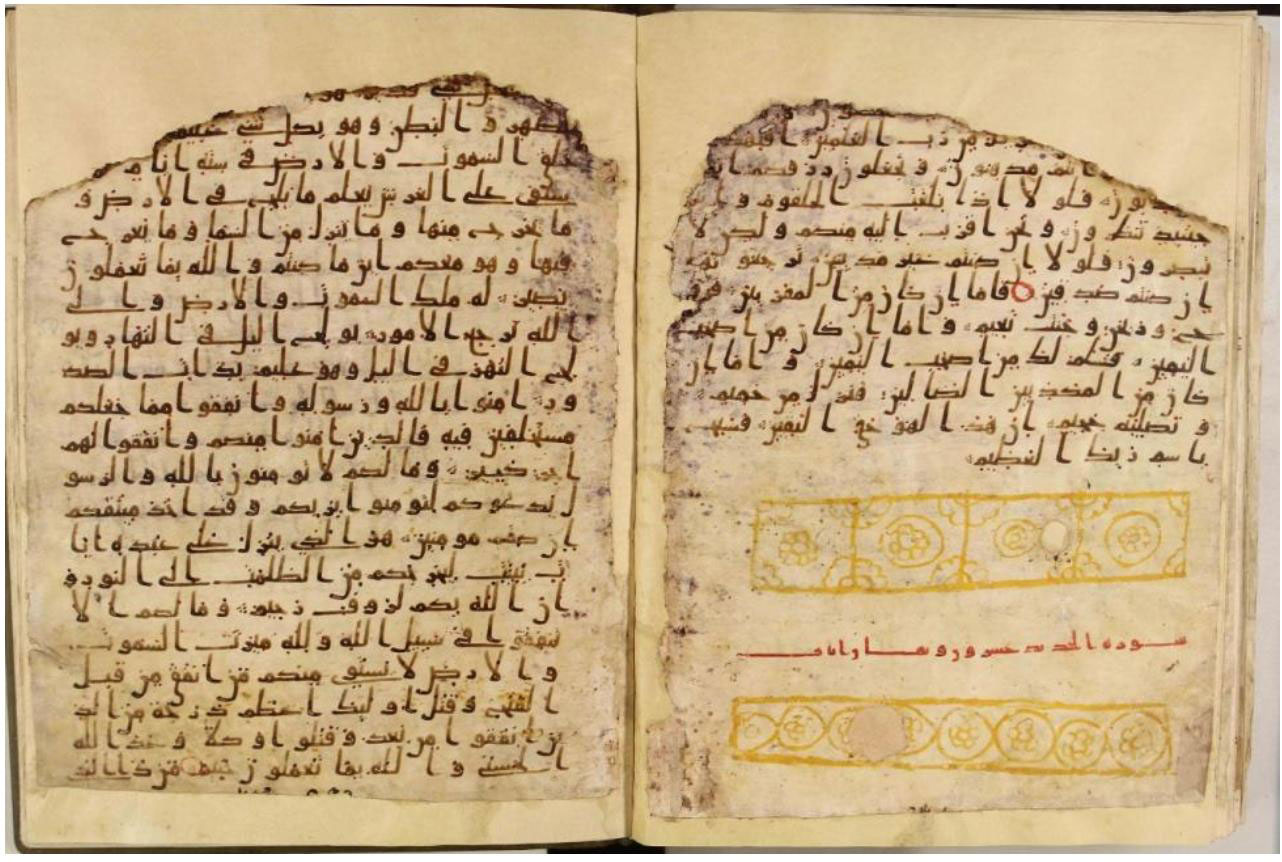 من رب العلمين افبهذ
انتم مدهنون وتجعلون رزقكم ا
بون فلولا اذا بلغت الحلقوم وا
حينئذ تنظرون ونحن اقرب اليه منكم ولكن لا
تبصرون فلولا ان كنتم غير مدينين ترجعونها
ان كنتم صدقين فاما ان كان من المقربين فرو
ح وريحن وجنت نعيم واما ان كان من اصحب
اليمين فسلم لك من اصحب اليمين واما ان
كان من المكذبين الضالين فنزل من حميم
وتصليه جحيم ان هذا لهو حق اليقين فسبح
باسم ربك العظيم
سورة الحديد عشرون و
والظهر والبطن وهو بكل شي عليم
خلق السموت والارض في ستة ايام
استوى على العرش يعلم ما يلج في الارض و
ما يخرج منها وما ينزل من السما وما يعرج
فيها وهو معكم اين ما كنتم والله بما تعملون
بصير له ملك السموت والارض والى
الله ترجع الامور يولج اليل في النهار ويو
لج النهر في اليل وهو عليم بذات الصد
ور امنوا بالله ورسوله وانفقوا مما جعلكم
مستخلفين فيه فالذين امنوا منكم وانفقوا لهم
اجر كبير وما لكم لا تومنون بالله والرسو
ل يدعوكم لتومنوا بربكم وقد اخذ ميثقكم
ان كنتم مومنين هو الذي ينزل على عبده ايا
ت بينت ليخرجكم من الظلمت الى النور و
ان الله بكم لروف رحيم وما لكم الا
تنفقوا في سبيل الله ولله ميرث السموت
والارض لا يستوي منكم من انفق من قبل
الفتح وقتل اوليك اعظم درجة من الذ
ين انفقوا من بعد وقتلوا وكلا وعد الله
الحسنى والله بما تعملون خبير من ذا الذ